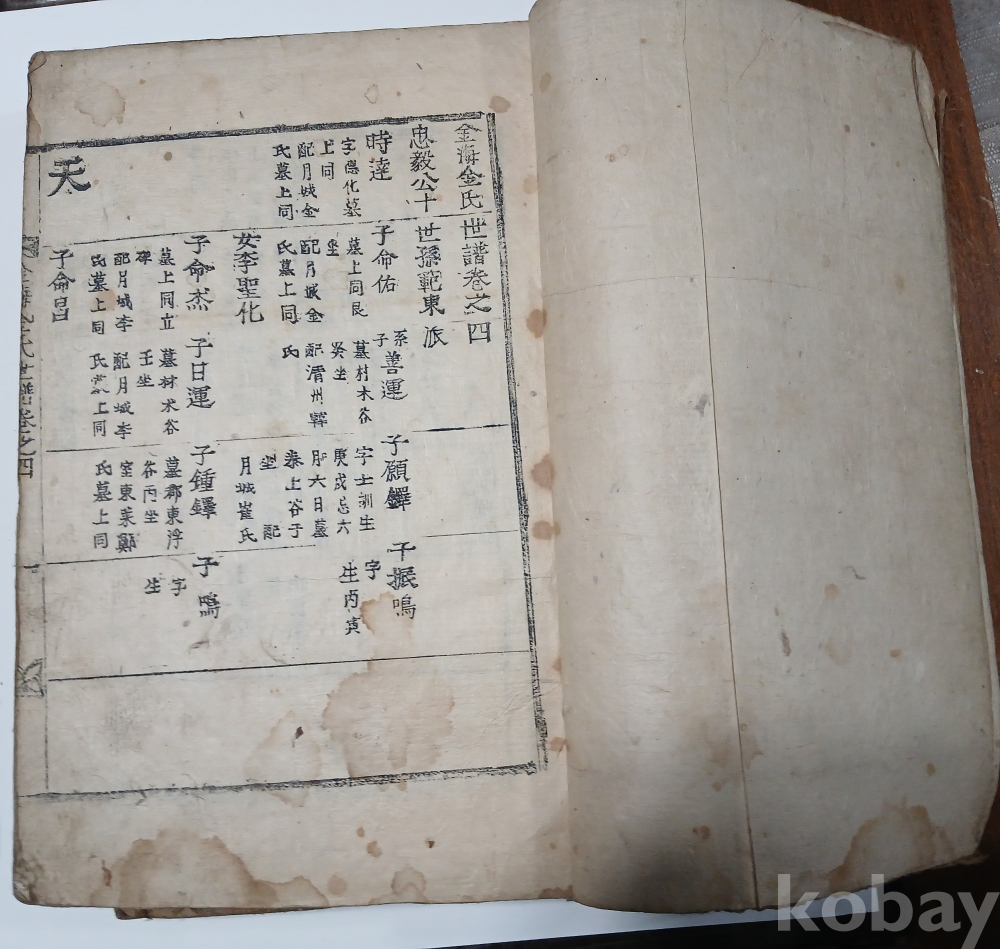 金海金氏世譜卷之四
忠毅公十世孫範東派
時達
字德化墓
上同
配月城金
氏墓上同
子命佑
墓上同艮
坐
配月城金
氏墓上同
系子善運
墓村木谷
坐
配
州
氏
子願鐸
字士訓生
庚戌忌六
月六日墓
泰上谷子
坐 配
月城崔氏
子振鳴
字
生丙寅
女李聖化
子命杰
墓上同立
碑
配月城李
氏墓上同
子日運
墓村木谷
壬坐
配月城李
氏墓上同
子鍾鐸
墓郡東浮
谷丙坐
室東萊鄭
氏墓上同
子 鳴
字
生
子命昌
天
金海金氏世譜卷之四
一
kobay